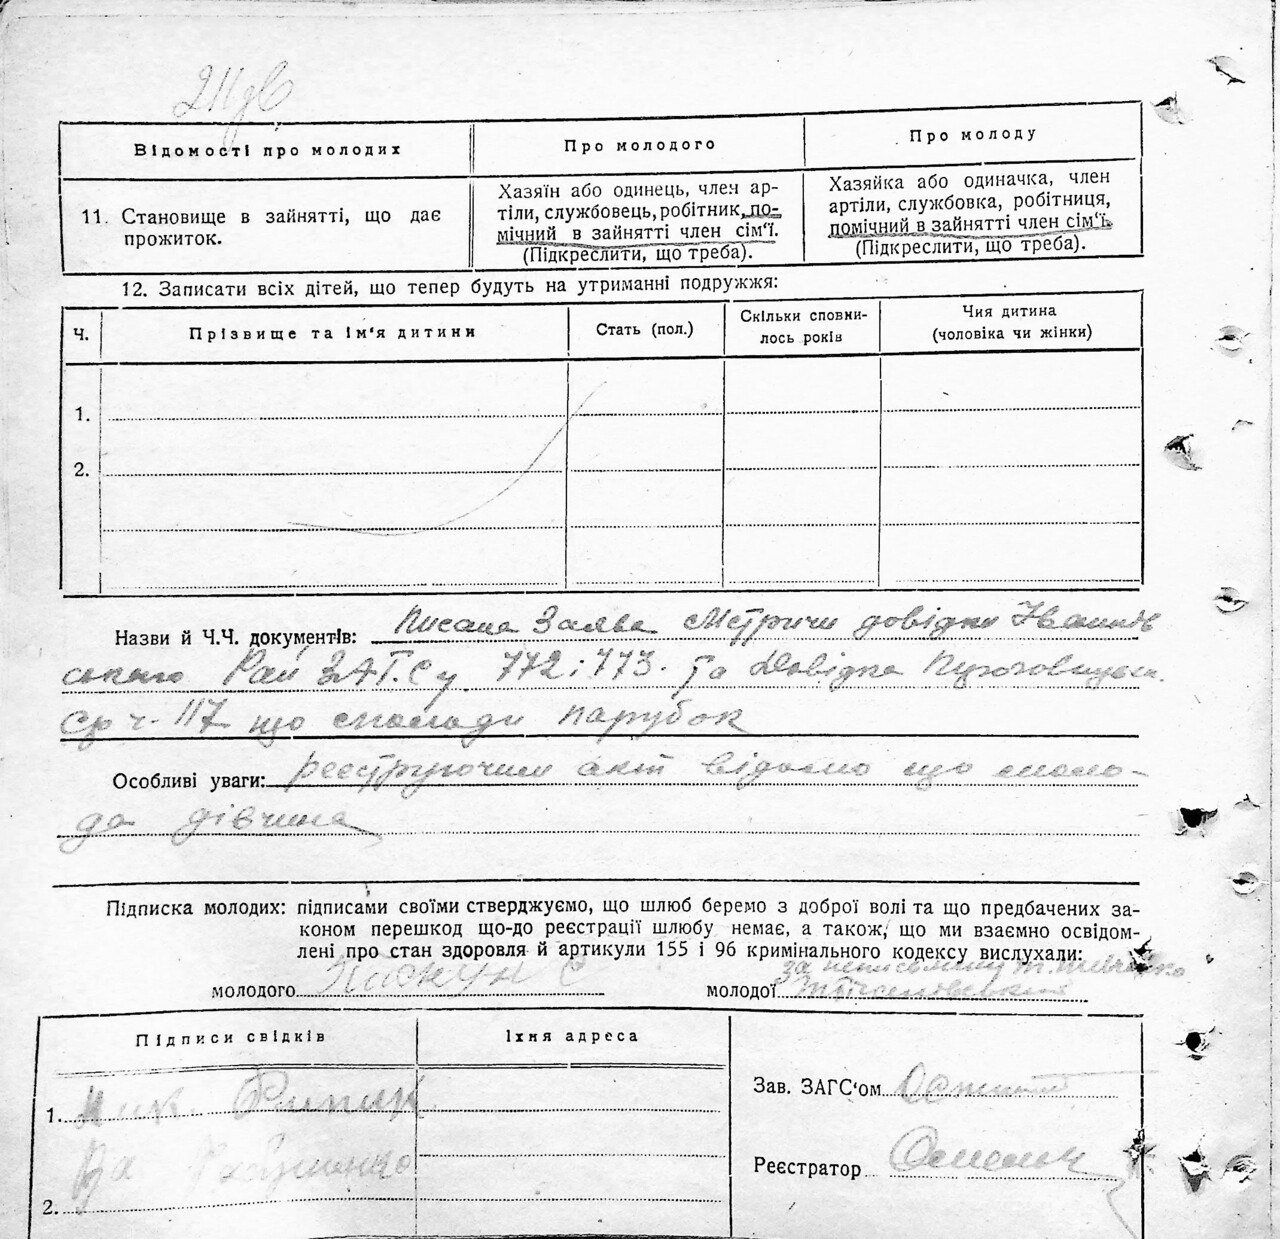 Відомості про молодих
Про молодого
Про молоду
11. Становище в зайнятті, що дає
прожиток.
Хазяїн або одинець, член ар-
тіли, службовець, робітник, по-
мічний в зайнятті член сім'ї.
(Підкреслити, що треба).
Хазяйка або одиначка, член
артіли, службовка, робітниця,
помічний в зайнятті член сім'ї.
(Підкреслити, що треба).
12. Записати всіх дітей, що тепер будуть на утриманні подружжя:
Ч.
Прізвище та ім'я дитини
Стать (пол.)
Скільки сповни-
лось років
Чия дитина
(чоловіка чи жінки)
1.
2.
Назви й Ч.Ч. документів: Писана Заява Метричи довідки Іванків
ського Рай ЗАГСу 772 і 773. та Довідка
Ср ч. 117 що молоди парубок
Особливі уваги: реєструючим акт відомо що моло-
да дівчина
Підписка молодих: підписами своїми стверджуємо, що шлюб беремо з доброї волі та що предбачених за-
коном перешкод що-до реєстрації шлюбу немає, а також, що ми взаємно освідом-
лені про стан здоровля й артикули 155 і 96 кримінального кодексу вислухали:
за неписьмену
молодого Пискун С
молодої
Підписи свідків
Їхня адреса
1.
2.
Зав. ЗАГС'ом
Реєстратор